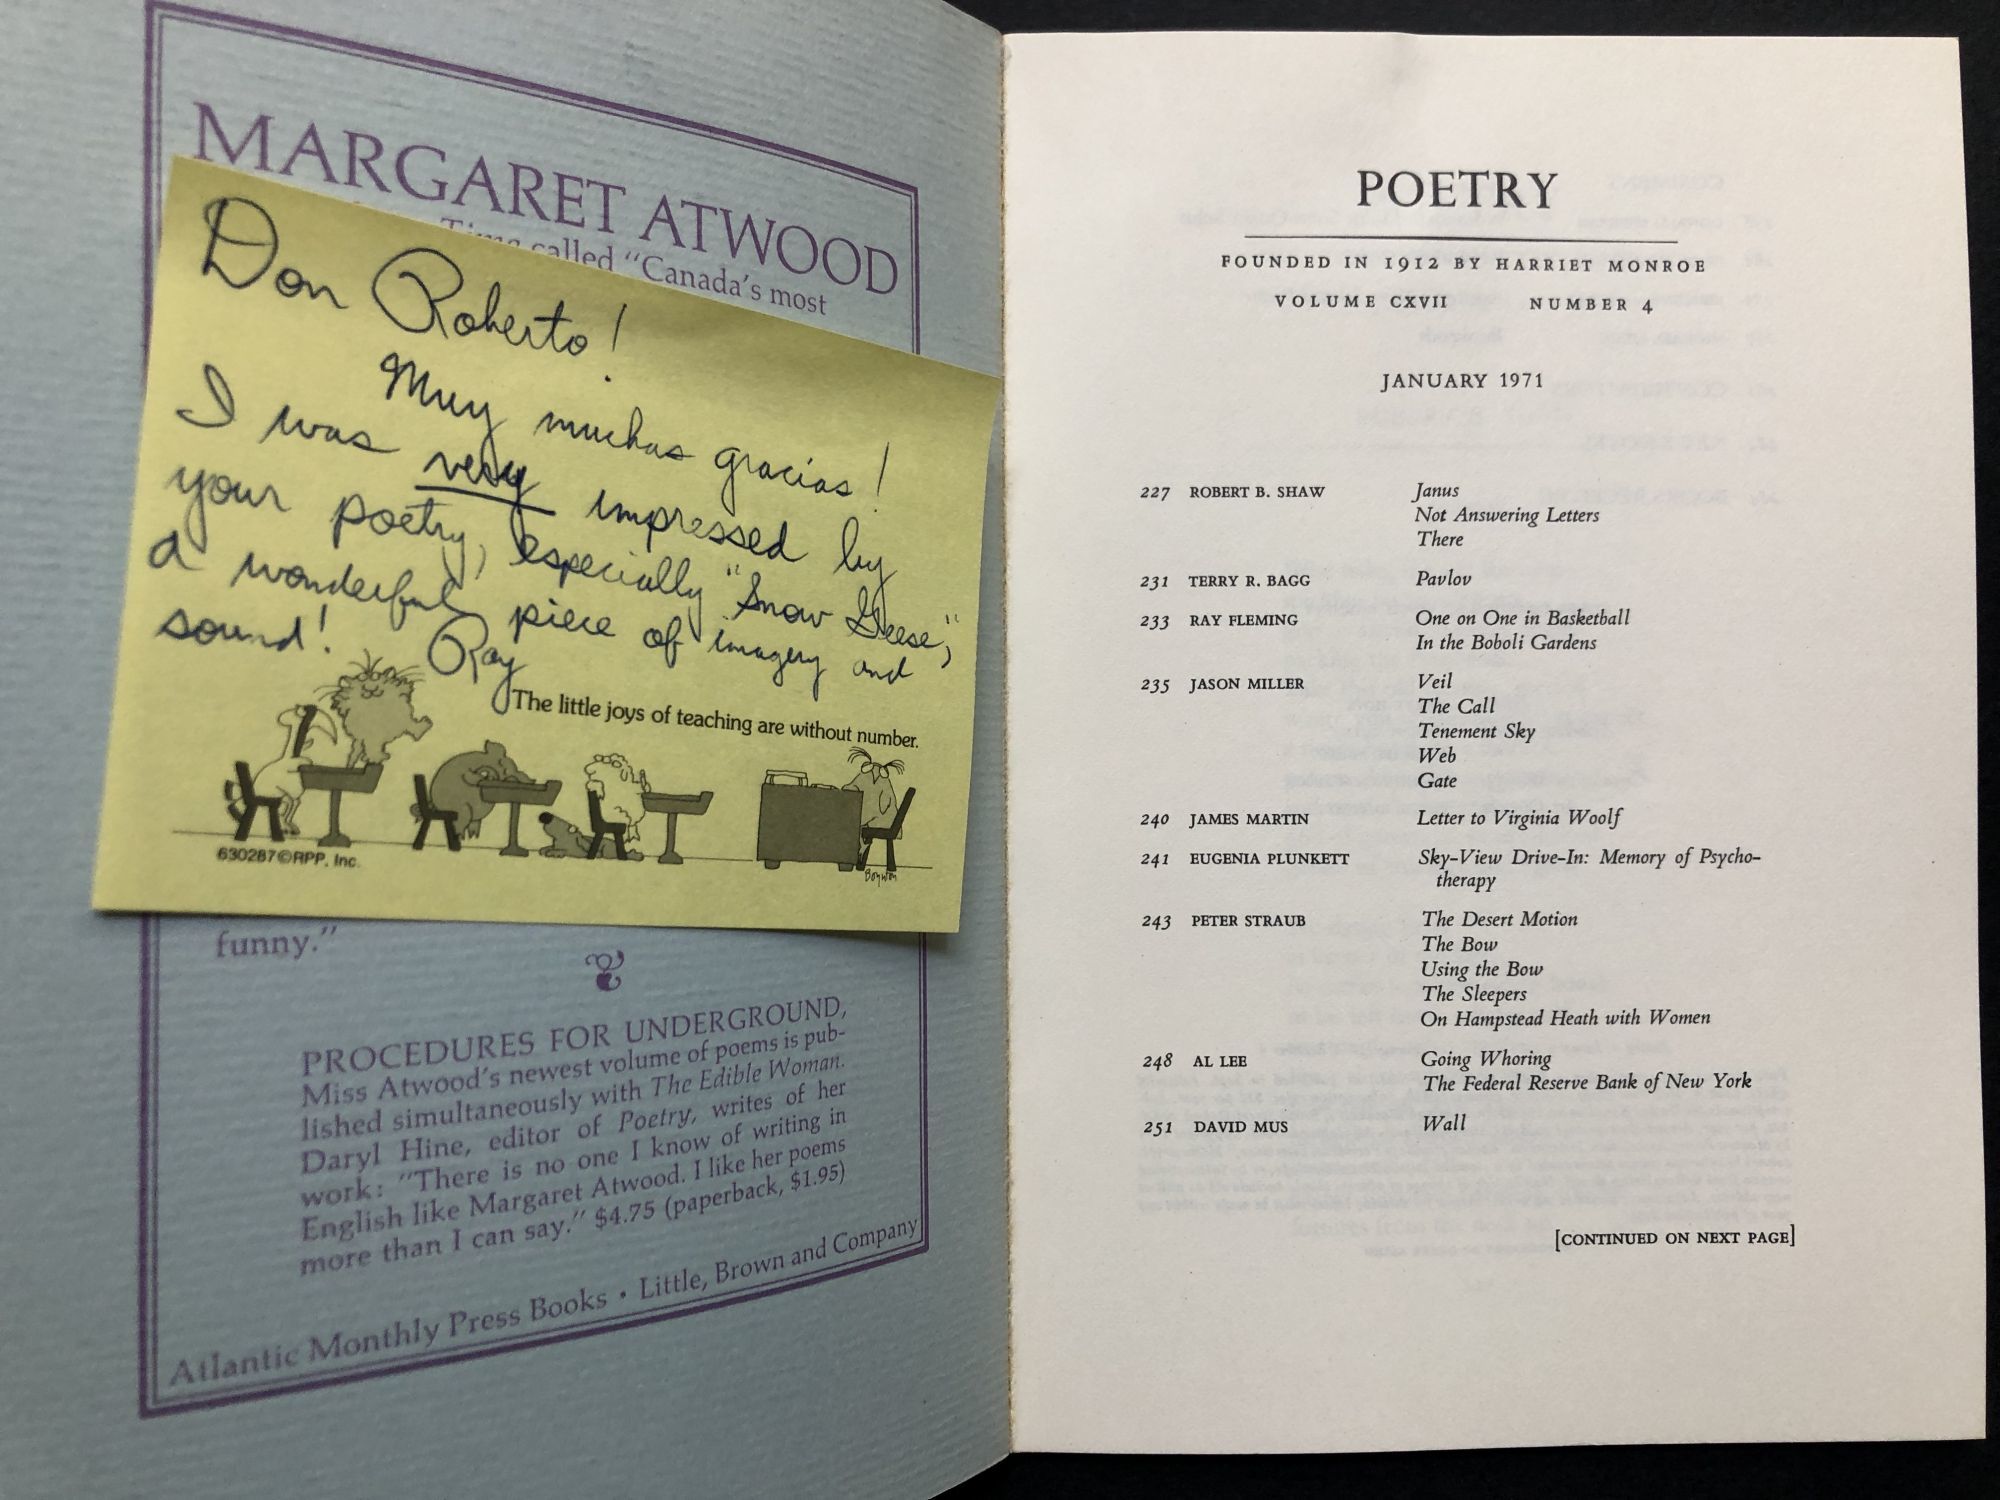 MARGARET ATWOOD
Time called "Canada's most
Don Roberto!
Muy muchas gracias!
I was very impressed by
your poetry, especially "Snow Geese,"
a wonderful piece of imagery and
sound! Ray
The little joys of teaching are without number.
630287©RPP, Inc.
Boynton
funny."
PROCEDURES FOR UNDERGROUND,
Miss Atwood's newest volume of poems is pub-
lished simultaneously with The Edible Woman.
Daryl Hine, editor of Poetry, writes of her
work: "There is no one I know of writing in
English like Margaret Atwood. I like her poems
more than I can say." $4.75 (paperback, $1.95)
Atlantic Monthly Press Books • Little, Brown and Company
POETRY
FOUNDED IN 1912 BY HARRIET MONROE
VOLUME CXVII NUMBER 4
JANUARY 1971
227 ROBERT B. SHAW Janus
Not Answering Letters
There
231 TERRY R. BAGG Pavlov
233 RAY FLEMING One on One in Basketball
In the Boboli Gardens
235 JASON MILLER Veil
The Call
Tenement Sky
Web
Gate
240 JAMES MARTIN Letter to Virginia Woolf
241 EUGENIA PLUNKETT Sky-View Drive-In: Memory of Psycho-
therapy
243 PETER STRAUB The Desert Motion
The Bow
Using the Bow
The Sleepers
On Hampstead Heath with Women
248 AL LEE Going Whoring
The Federal Reserve Bank of New York
251 DAVID MUS Wall
[CONTINUED ON NEXT PAGE]